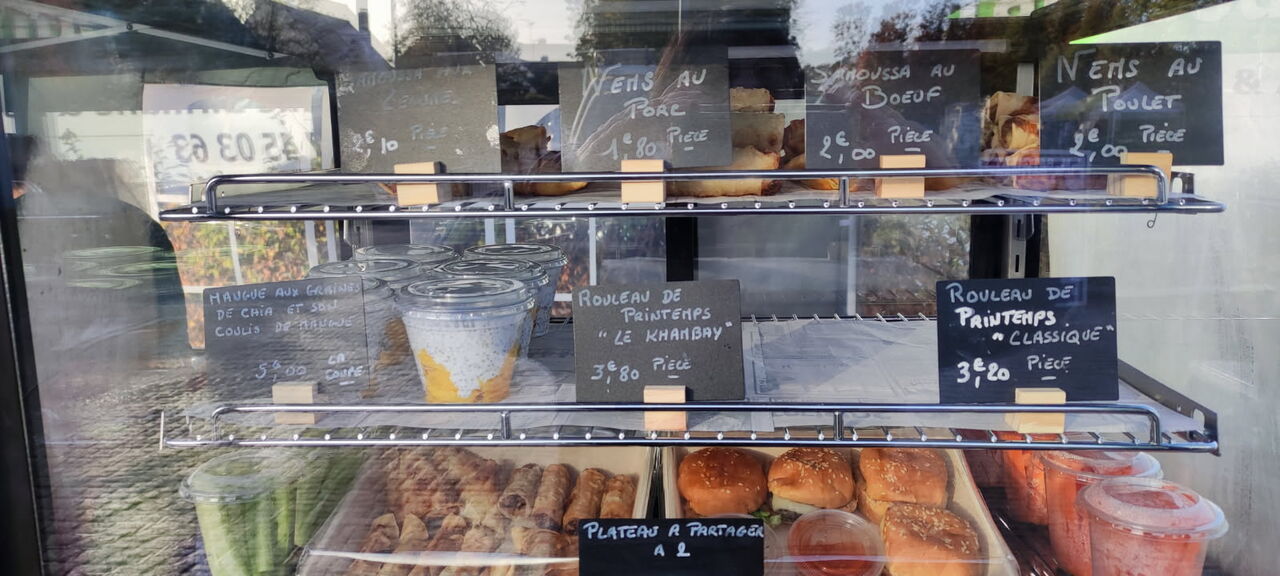 NEMS AU
PORC
1€80 PIÈCE
SAMOUSSA AU
BOEUF
2€,00 PIÈCE
NEMS AU
POULET
2€,00 PIÈCE
2€,10 PIÈCE
45 03 63
MANGUE AUX GRAINES
DE CHIA ET SON
COULIS DE MANGUE
5€,00 LA
COUPE
ROULEAU DE
PRINTEMPS
"LE KHAMBAY"
3€,80 PIÈCE
ROULEAU DE
PRINTEMPS
"CLASSIQUE"
3€,20 PIÈCE
PLATEAU A PARTAGER
A 2